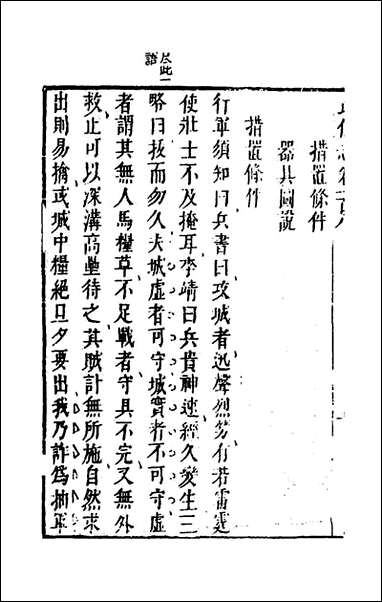 尽此一
語
措置條件
器具圖說
措置條件
行軍須知曰兵書曰攻城者迅聲烈勢有若雷霆
使壯士不及掩耳李靖曰兵貴神速經久變生三
略曰拔而勿久夫城虛者可守城實者不可守虛
者謂其無人馬糧草不足戰者守具不完又無外
救止可以深溝高壘待之其賊計無所施自然求
出則易擒或城中糧絕旦夕要出我乃詐爲抽軍